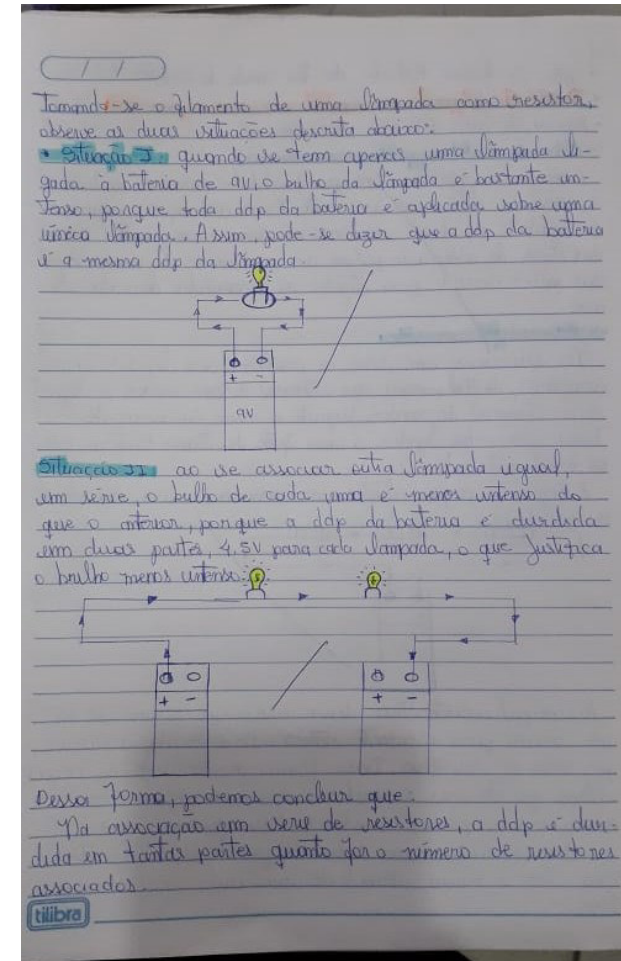 / /
Tomando-se o filamento de uma lâmpada como resistor,
observe as duas situações descrita abaixo:
• Situação I quando se tem apenas uma lâmpada li-
gada à bateria de 9V, o brilho da lâmpada é bastante in-
tenso, porque toda ddp da bateria é aplicada sobre uma
única lâmpada. Assim, pode-se dizer que a ddp da bateria
é a mesma ddp da lâmpada.
+ -
9V
Situação II ao se associar outra lâmpada igual,
em série, o brilho de cada uma é menos intenso do
que o anterior, porque a ddp da bateria é dividida
em duas partes, 4,5V para cada lâmpada, o que justifica
o brilho menos intenso.
+ - + -
Dessa forma, podemos concluir que:
Na associação em série de resistores, a ddp é divi-
dida em tantas partes quanto for o número de resistores
associados.
tilibra